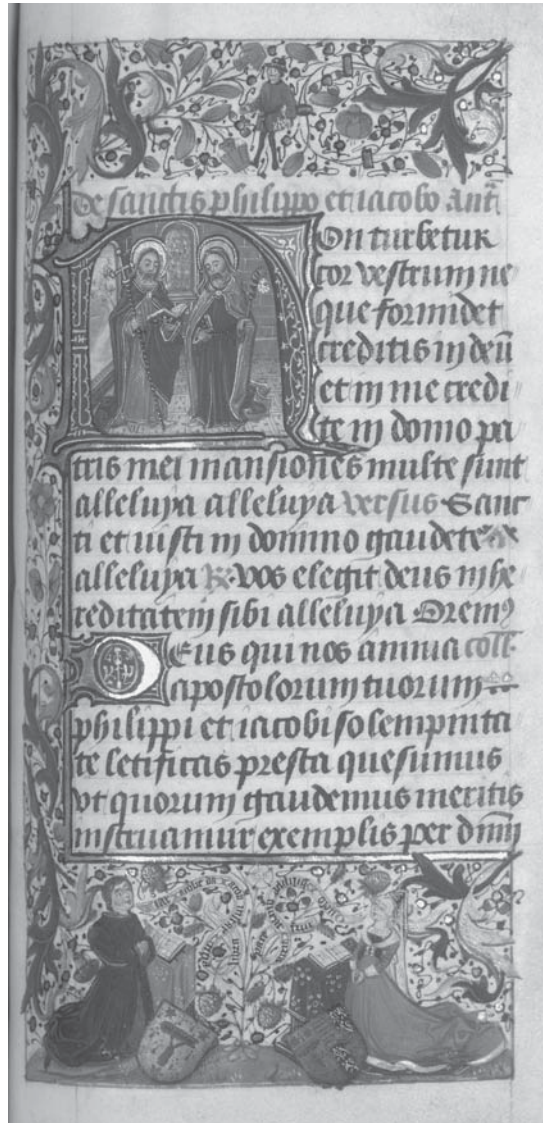 De sanctis philippo et iacobo antͫ
Non turbetur
cor vestrum ne
que formidet
creditis in deū
et in me credi
te in domo pa
tris mei mansiones multe sunt
alleluya alleluya versus Sanc
ti et iusti in domino gaudete
alleluya R. vos elegit deus in he
reditatem sibi alleluya Oremꝰ
Deus qui nos annua coll.
apostolorum tuorum
philippi et iacobi solempnita
te letificas presta quesumus
vt quorum gaudemus meritis
instruamur exemplis per dnm